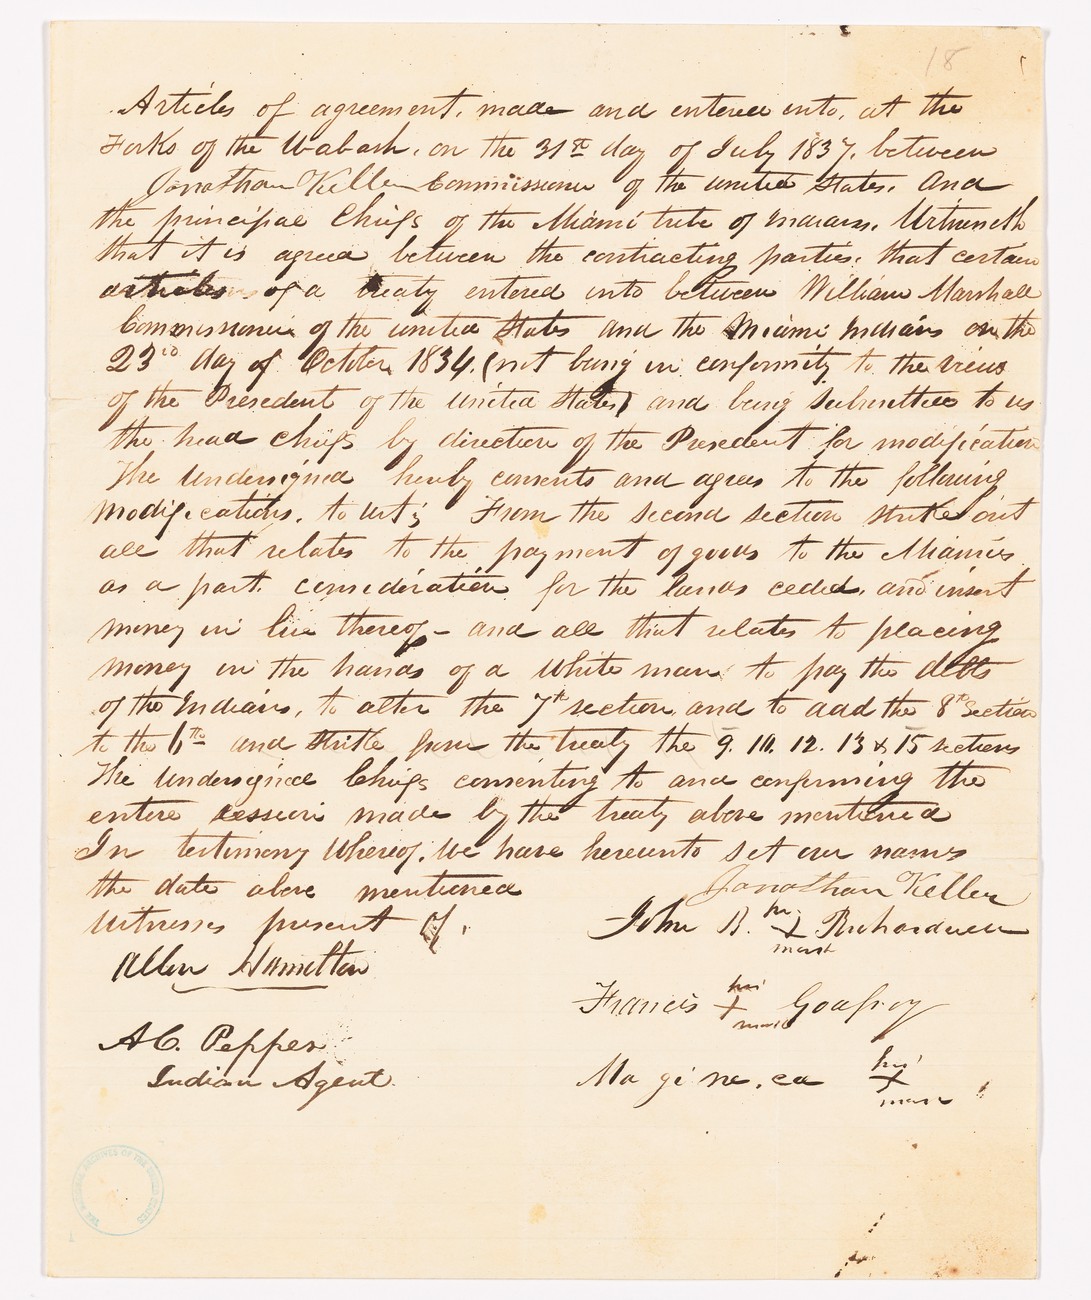 18
Articles of agreement, made and entered into, at the
Forks of the Wabash, on the 31st day of July 1837, between
Jonathan Keller Commissioner of the united States, And
the principal Chiefs of the Miami tribe of Indians, Witnesseth
that it is agreed between the contracting parties, that certain
articles of a treaty entered into between William Marshall
Commissioner of the united States and the Miami Indians on the
23rd day of October 1834, (not being in conformity to the views
of the Presedent of the united States) and being submitted to us
the head Chiefs by direction of the Presedent for modification
The undersigned hereby consents and agrees to the following
modifications, to wit; From the second section strike out
all that relates to the payment of goods to the Miamies
as a part consideration for the lands ceded, and insert
money in lieu thereof - and all that relates to placing
money in the hands of a white man to pay the debts
of the Indians, to alter the 7th section and to add the 8th Section
to the 6th and strike from the treaty the 9. 10. 12. 13 & 15 sections
The undersigned Chiefs consenting to and confirming the
entire cession made by the treaty above mentioned
In testimony whereof, we have hereunto set our names
the date above mentioned
Jonathan Keller
Witnesses present of,
John B. his X mark Richardville
Allen Hamilton
Francis his X mark Godfroy
A C. Pepper
Indian Agent
Ma gi ne, ca his X mark
THE NATIONAL ARCHIVES OF THE UNITED STATES